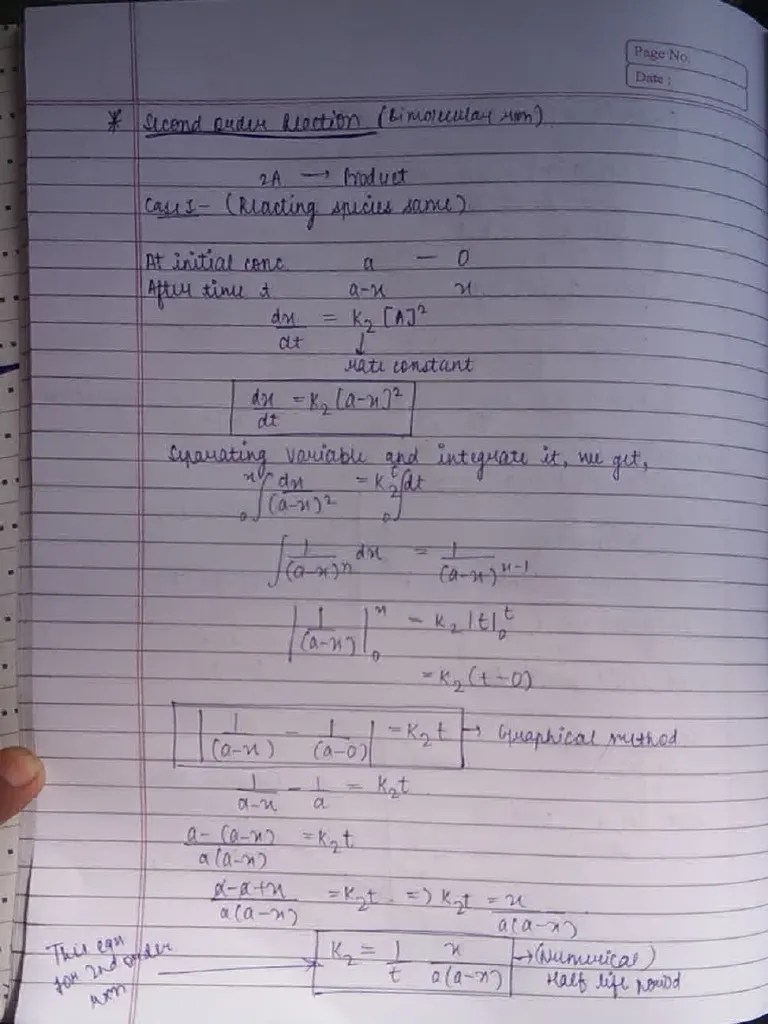 Page No.
Date :
* Second order Reaction (Bimolecular rxn)
2A → Product
Case I - (Reacting species same)
At initial conc a — 0
After time t a-x x
dx/dt = K₂ [A]²
↓
rate constant
dx/dt = K₂ [a-x]²
Separating variable and integrate it, we get,
₀∫ˣ dx/(a-x)² = K₂ ₀∫ᵗ dt
∫ 1/(a-x)ⁿ dx = 1/(a-x)ⁿ⁻¹
|1/(a-x)|₀ˣ = K₂ |t|₀ᵗ
= K₂ (t-0)
|1/(a-x) - 1/(a-0)| = K₂t → Graphical method
1/a-x - 1/a = K₂t
a-(a-x)/a(a-x) = K₂t
a-a+x/a(a-x) = K₂t. => K₂t = x/a(a-x)
This eqn for 2nd order rxn → K₂ = 1/t x/a(a-x) → (Numerical)
Half life period